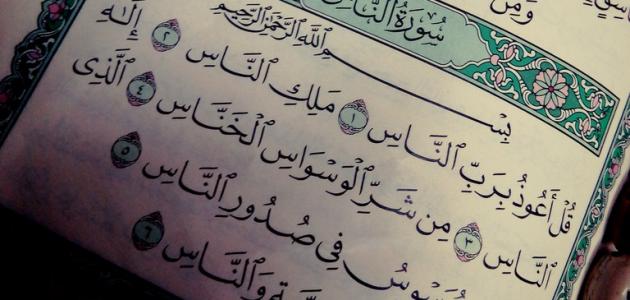 وَمِن
سُورَةُ النَّاسِ
بِسْمِ ٱللَّهِ ٱلرَّحْمَٰنِ ٱلرَّحِيمِ
قُلْ أَعُوذُ بِرَبِّ ٱلنَّاسِ ١ مَلِكِ ٱلنَّاسِ ٢ إِلَٰهِ
ٱلنَّاسِ ٣ مِن شَرِّ ٱلْوَسْوَاسِ ٱلْخَنَّاسِ ٤ ٱلَّذِى
يُوَسْوِسُ فِى صُدُورِ ٱلنَّاسِ ٥
وَٱلنَّاسِ ٦